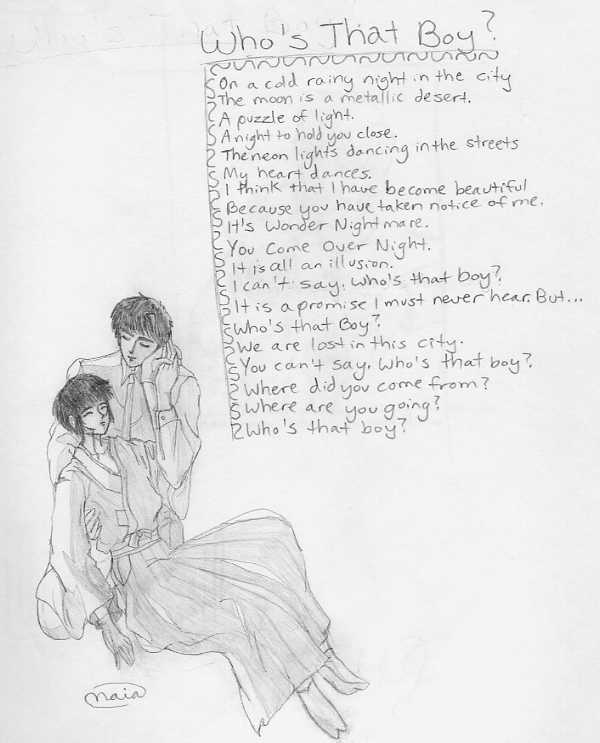 Who's That Boy?
On a cold rainy night in the city
The moon is a metallic desert.
A puzzle of light.
A night to hold you close.
The neon lights dancing in the streets
My heart dances.
I think that I have become beautiful
Because you have taken notice of me.
It's Wonder Nightmare.
You Come Over Night.
It is all an illusion.
I can't say. Who's that boy?
It is a promise I must never hear. But...
Who's that Boy?
We are lost in this city.
You can't say. Who's that boy?
Where did you come from?
Where are you going?
Who's that boy?
naia